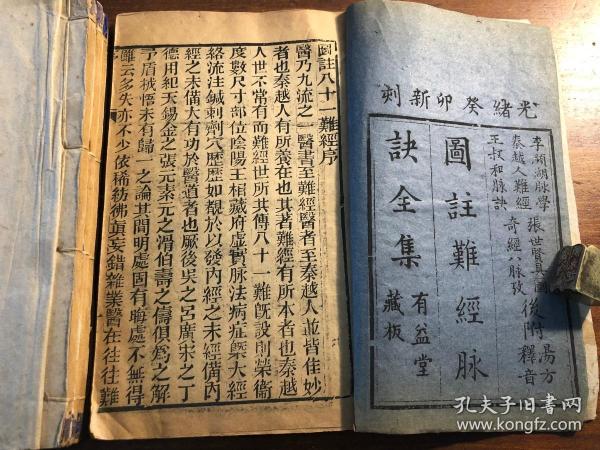 光緒癸卯新刻
李瀕湖脉學
秦越人難經
王叔和脉訣
張世賢
奇經八脉攷
後附
湯方
釋音
圖註難經脉
訣全集
有益堂
藏板
圖註八十一難經序
醫乃九流之一醫書至難經醫者至秦越人並皆佳妙
者也秦越人有所養在也其著難經有所本者也秦越
人世不常有而難經世所共傳八十一難旣設則榮衞
度數尺寸部位陰陽王相藏府虛實脉法病症槩大經
絡流注鍼刺劑穴歷歷如覩於以發內經之未經備內
經之未備大有功於醫道者也厥後吳之呂廣宋之丁
德用䂓天錫金之張元素元之滑伯壽之儔俱爲之解
予盾捍悟末有歸一之論其間明處固有晦處不無得
雖云多失亦不少依稀紡彿眞妄錯雜業醫在往往難
孔夫子旧书网